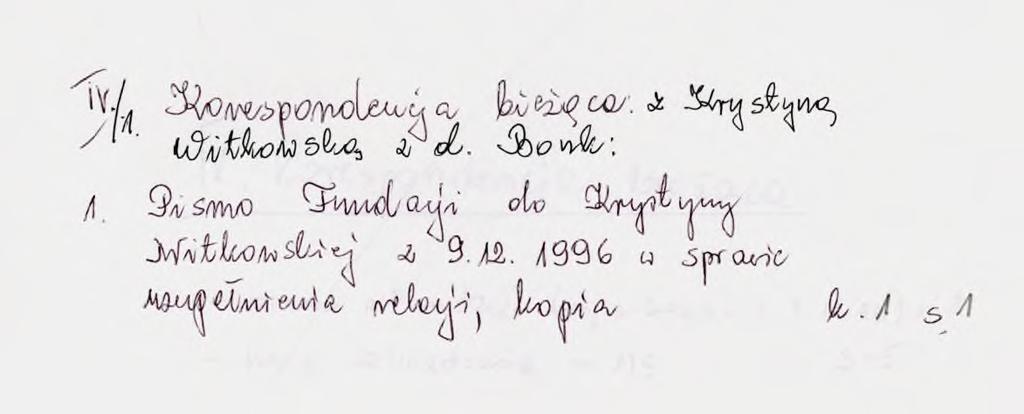 IV./1. Korespondencja bieżąca: z Krystyną
Witkowską z d. Bonk:
1. Pismo Fundacji do Krystyny
Witkowskiej z 9.12.1996 w sprawie
uzupełnienia relacji, kopia k. 1 s. 1